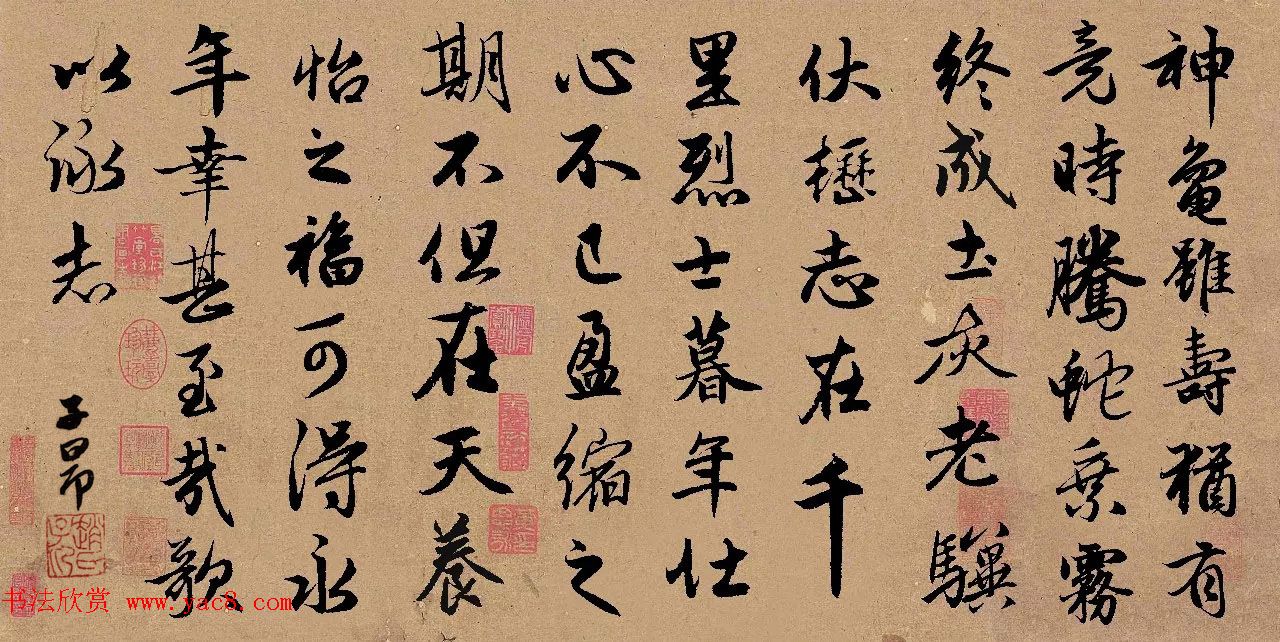 神龜雖壽猶有
竟時騰蛇乘霧
終成土灰老驥
伏櫪志在千
里烈士暮年壮
心不已盈縮之
期不但在天養
怡之福可得永
年幸甚至哉歌
以詠志
子昂
趙氏子昂
书法欣赏 www.yac8.com